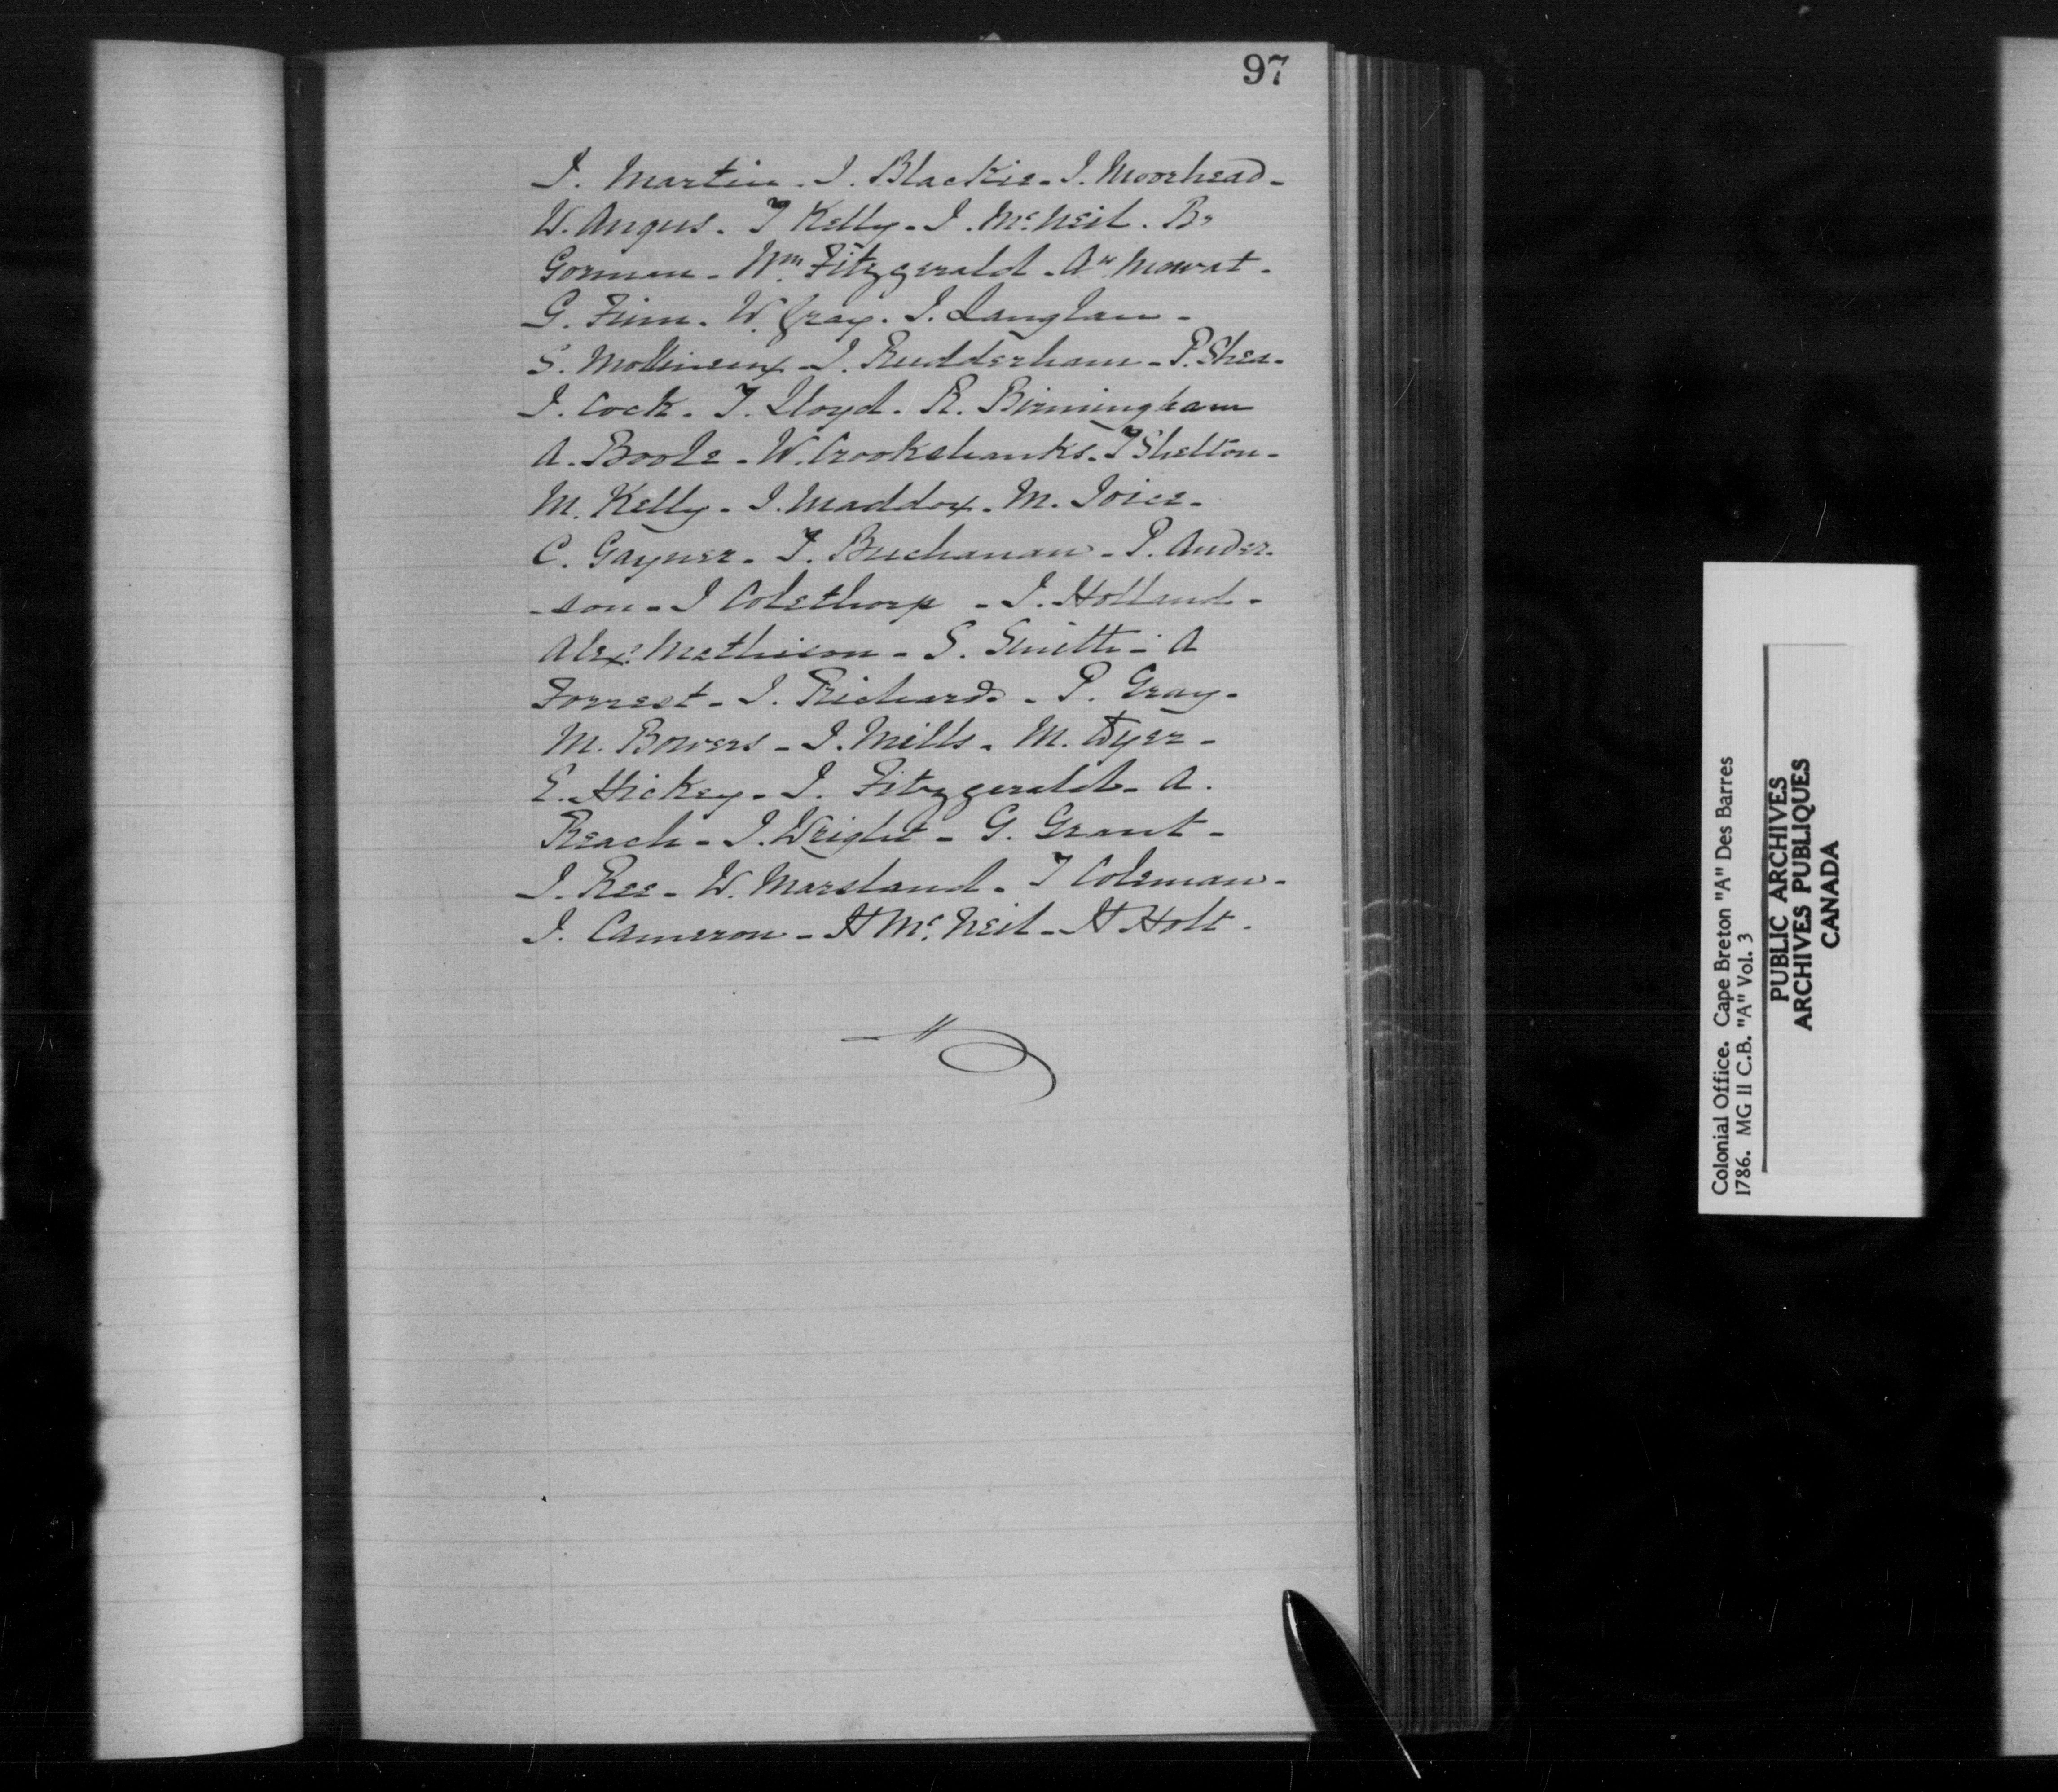 97
J. Martin. J. Blackie. J. Moorhead.
W. Angus. T Kelly. J. Mc. Neil. Br
Gorman. Wm. Fitzgerald. Aw. Mowat.
G. Finn. W. Gray. J. Langlan.
S. Mollineux. J. Rudderham. P. Shea.
J. Cock. T. Lloyd. R. Birmingham
A. Boole. W. Crookshanks. T Shelton.
M. Kelly. J. Maddox. M. Joice.
C. Gayner. T. Buchanan. P. Ander.
-son. J Colethorp. J. Holland.
Alexr. Mathison. S. Smith. A
Forrest. J. Richards. P. Gray.
M. Bowers. J. Mills. M. Dyer.
E. Hickey. J. Fitzgerald. A.
Reach. J. Wright. G. Grant.
J. Ree. W. Marsland. T Coleman.
J. Cameron. H Mc. Neil. H Holt.
Colonial Office. Cape Breton "A" Des Barres
1786. MG 11 C.B. "A" Vol. 3
PUBLIC ARCHIVES
ARCHIVES PUBLIQUES
CANADA